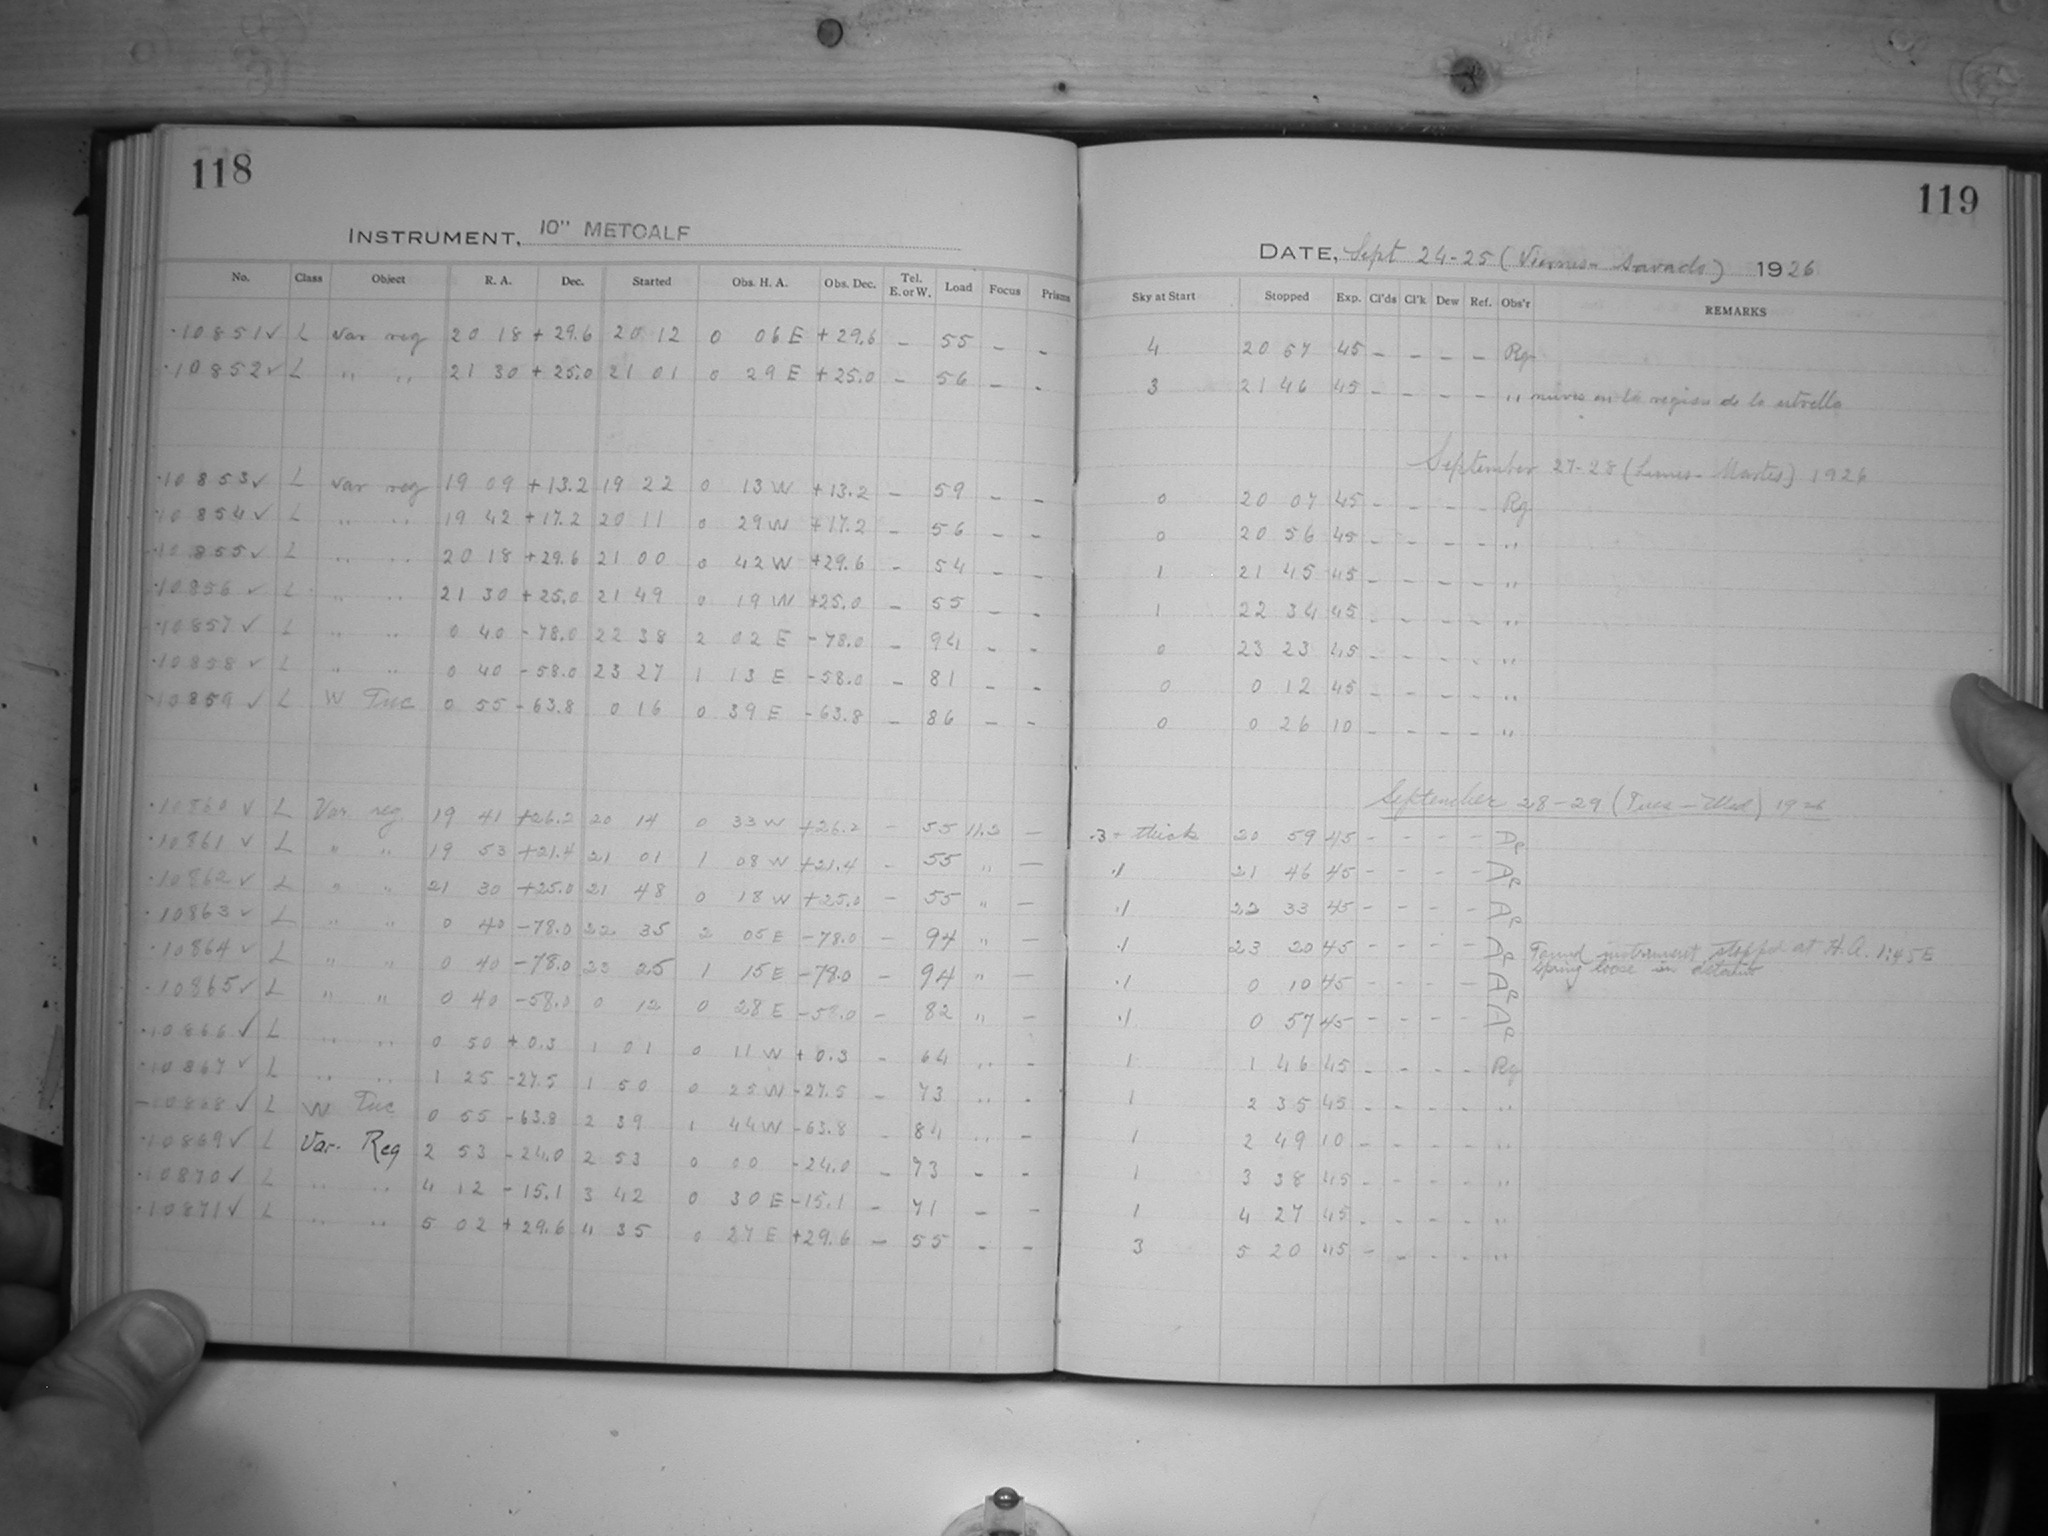 118
INSTRUMENT, 10" METCALF
No. Class Object R. A. Dec. Started Obs. H. A. Obs. Dec. Tel. E. or W. Load Focus Prisms
10851 ✓ L Var reg 20 18 + 29.6 20 12 0 06 E + 29.6 - 55 - -
10852 ✓ L " " 21 30 + 25.0 21 01 0 29 E + 25.0 - 56 - -
10853 ✓ L Var reg 19 09 + 13.2 19 22 0 13 W + 13.2 - 59 - -
10854 ✓ L " " 19 42 + 17.2 20 11 0 29 W + 17.2 - 56 - -
10855 ✓ L " " 20 18 + 29.6 21 00 0 42 W + 29.6 - 54 - -
10856 ✓ L " " 21 30 + 25.0 21 49 0 19 W + 25.0 - 55 - -
10857 ✓ L " " 0 40 - 78.0 22 38 2 02 E - 78.0 - 94 - -
10858 ✓ L " " 0 40 - 58.0 23 27 1 13 E - 58.0 - 81 - -
10859 ✓ L W Tuc 0 55 - 63.8 0 16 0 39 E - 63.8 - 86 - -
10860 ✓ L Var reg 19 41 +26.2 20 14 0 33 W +26.2 - 55 11.2 -
10861 ✓ L " " 19 53 +21.4 21 01 1 08 W +21.4 - 55 " -
10862 ✓ L " " 21 30 +25.0 21 48 0 18 W +25.0 - 55 " -
10863 ✓ L " " 0 40 -78.0 22 35 2 05 E -78.0 - 94 " -
10864 ✓ L " " 0 40 -78.0 23 25 1 15 E -78.0 - 94 " -
10865 ✓ L " " 0 40 -58.0 0 12 0 28 E -58.0 - 82 " -
10866 ✓ L " " 0 50 + 0.3 1 01 0 11 W + 0.3 - 64 " -
10867 ✓ L " " 1 25 -27.5 1 50 0 25 W -27.5 - 73 " -
10868 ✓ L W Tuc 0 55 - 63.8 2 39 1 44 W -63.8 - 84 " -
10869 ✓ L Var. Reg 2 53 - 24.0 2 53 0 00 -24.0 - 73 - -
10870 ✓ L " " 4 12 - 15.1 3 42 0 30 E -15.1 - 71 - -
10871 ✓ L " " 5 02 + 29.6 4 35 0 27 E +29.6 - 55 - -
119
DATE, Sept 24-25 (Viernes - Savado) 1926
Sky at Start Stopped Exp. Cl'ds Cl'k Dew Ref. Obs'r REMARKS
4 20 57 45 - - - - Rg
3 21 46 45 - - - - " nuves en la region de la estrella
September 27-28 (Lunes - Martes) 1926
0 20 07 45 - - - - Rg
0 20 56 45 - - - - "
1 21 45 45 - - - - "
1 22 34 45 - - - - "
0 23 23 45 - - - - "
0 0 12 45 - - - - "
0 0 26 10 - - - - "
September 28-29 (Tues - Wed) 1926
.3 - thick 20 59 45 - - - - Dp
.1 21 46 45 - - - - Dp
.1 22 33 45 - - - - Dp
.1 23 20 45 - - - - Dp Found instrument stopped at H.A. 1:45 E
spring loose in
.1 0 10 45 - - - - Dp
.1 0 57 45 - - - - Dp
1 1 46 45 - - - - Rg
1 2 35 45 - - - - "
1 2 49 10 - - - - "
1 3 38 45 - - - - "
1 4 27 45 - - - - "
3 5 20 45 - - - - "